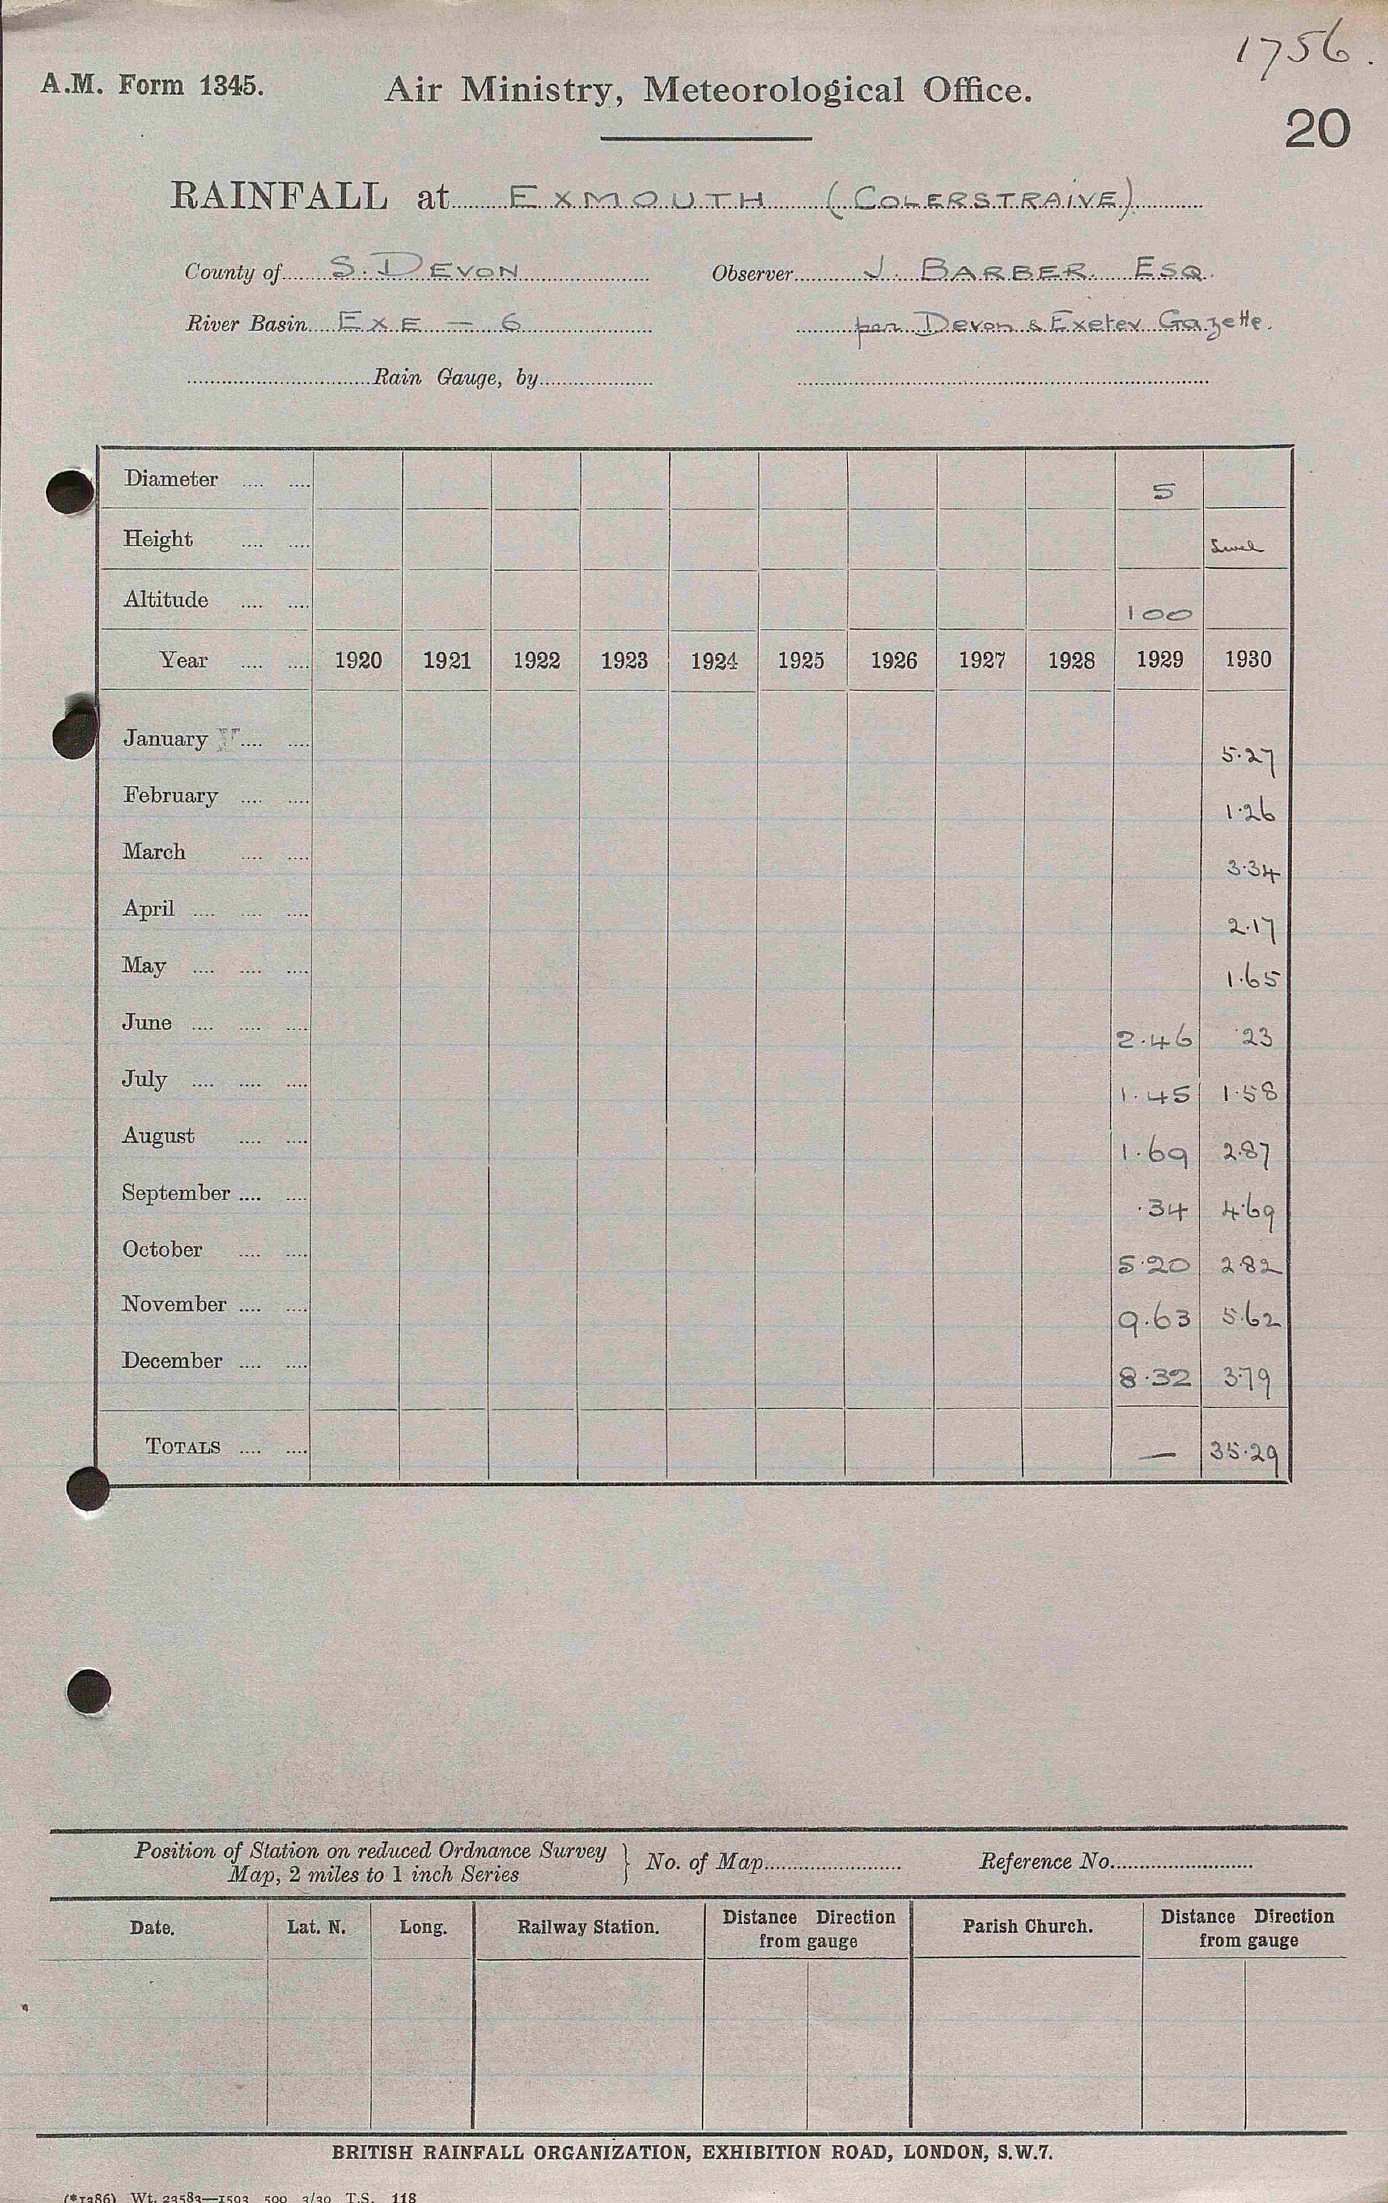 1756.
A.M. Form 1345. Air Ministry, Meteorological Office.
20
RAINFALL at EXMOUTH (COLERSTRAIVE)
County of S. DEVON Observer J. BARBER ESQ.
River Basin EXE — 6 per Devon & Exeter Gazette.
Rain Gauge, by
Diameter .... .... 5
Height .... ....
Altitude .... .... 100
Year .... .... 1920 1921 1922 1923 1924 1925 1926 1927 1928 1929 1930
January .... .... 5.27
February .... .... 1.26
March .... .... 3.34
April .... .... .... 2.17
May .... .... .... 1.65
June .... .... .... 2.46 .23
July .... .... .... 1.45 1.58
August .... .... 1.69 2.87
September .... .... .34 4.69
October .... .... 5.20 2.82
November .... .... 9.63 5.62
December .... .... 8.32 3.79
TOTALS .... .... — 35.29
Position of Station on reduced Ordnance Survey
Map, 2 miles to 1 inch Series } No. of Map Reference No.
Date. Lat. N. Long. Railway Station. Distance Direction from gauge Parish Church. Distance Direction from gauge
BRITISH RAINFALL ORGANIZATION, EXHIBITION ROAD, LONDON, S.W.7.
(*1386) Wt. 23583—1503 500 3/30 T.S. 118